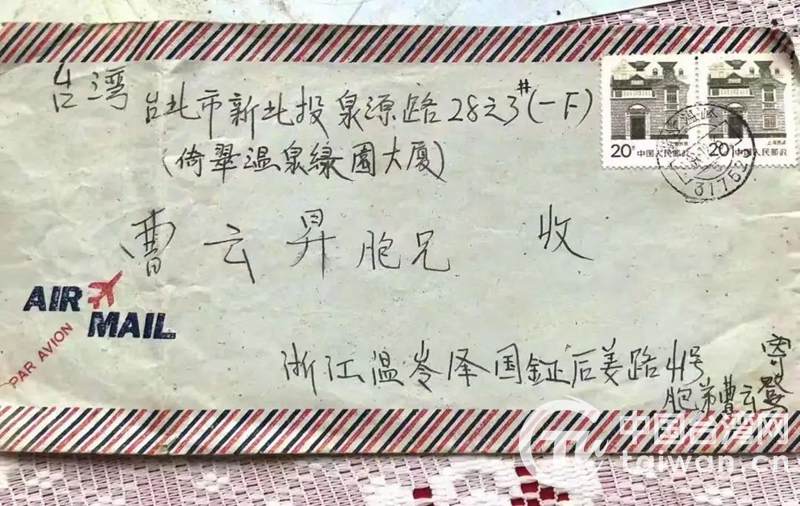 台湾
台北市新北投泉源路28之3#(一F)
(倚翠温泉綠園大厦)
曹云昇胞兄 收
AIR MAIL
PAR AVION
浙江温岺泽国金正后姜路41号
胞弟曹云登寄
20分中国人民邮政
20分中国人民邮政
中国台湾网
taiwan.cn